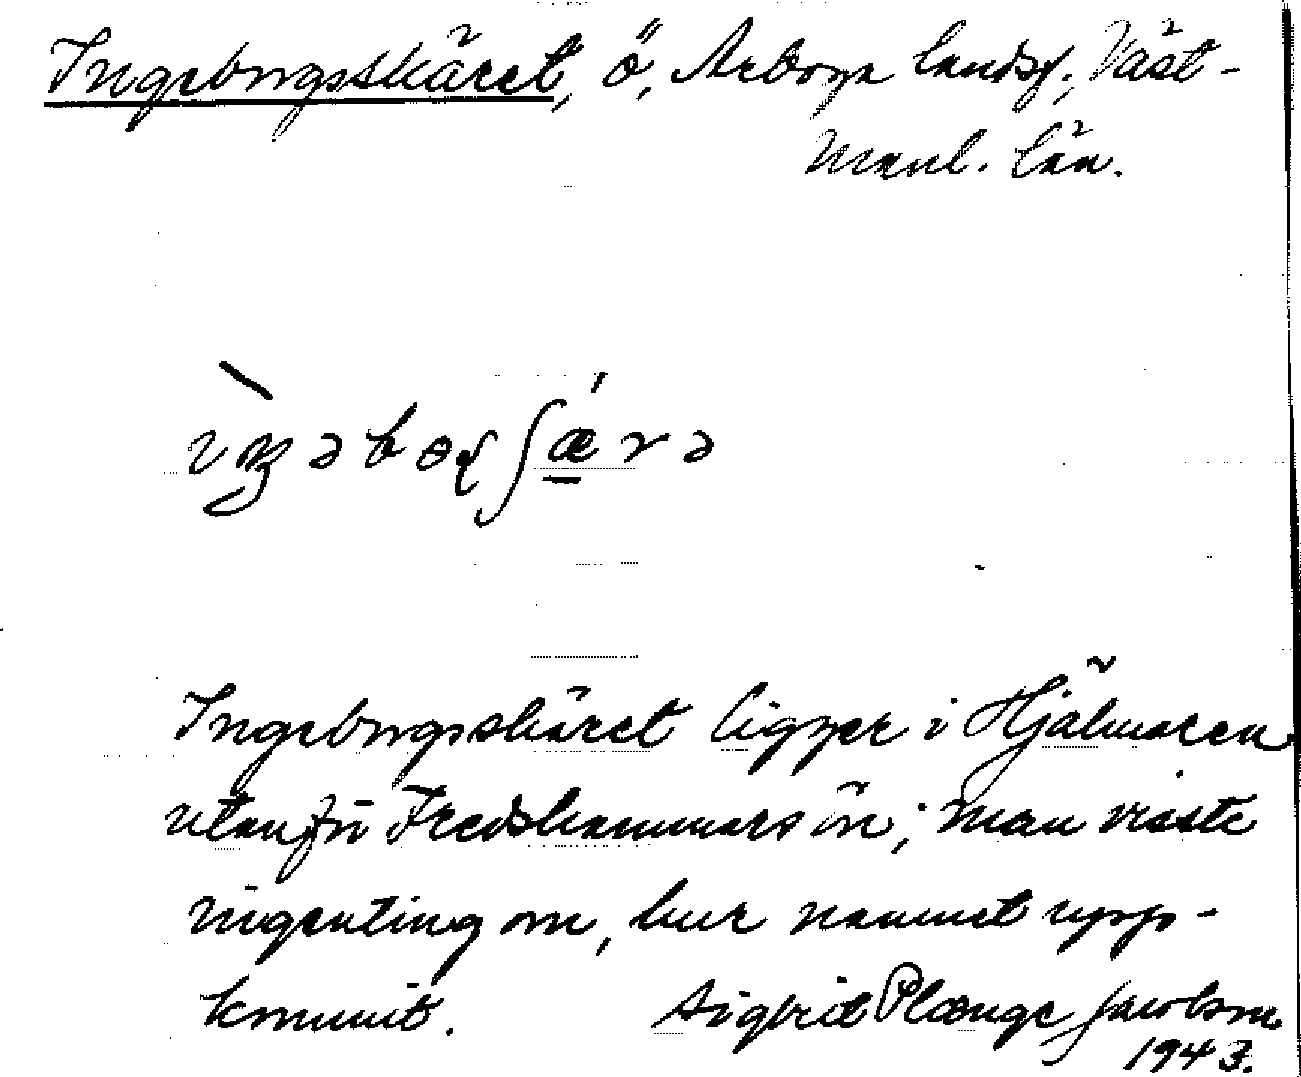 Ingeborgsskäret, ö, Arboga landsf., Väst-
manl. län.
Ingeborgsskäret ligger i Hjälmaren
utanför Fredshammars ön; man visste
ingenting om, hur namnet upp-
kommit. Sigfrid Plænge Jacobson
1943.